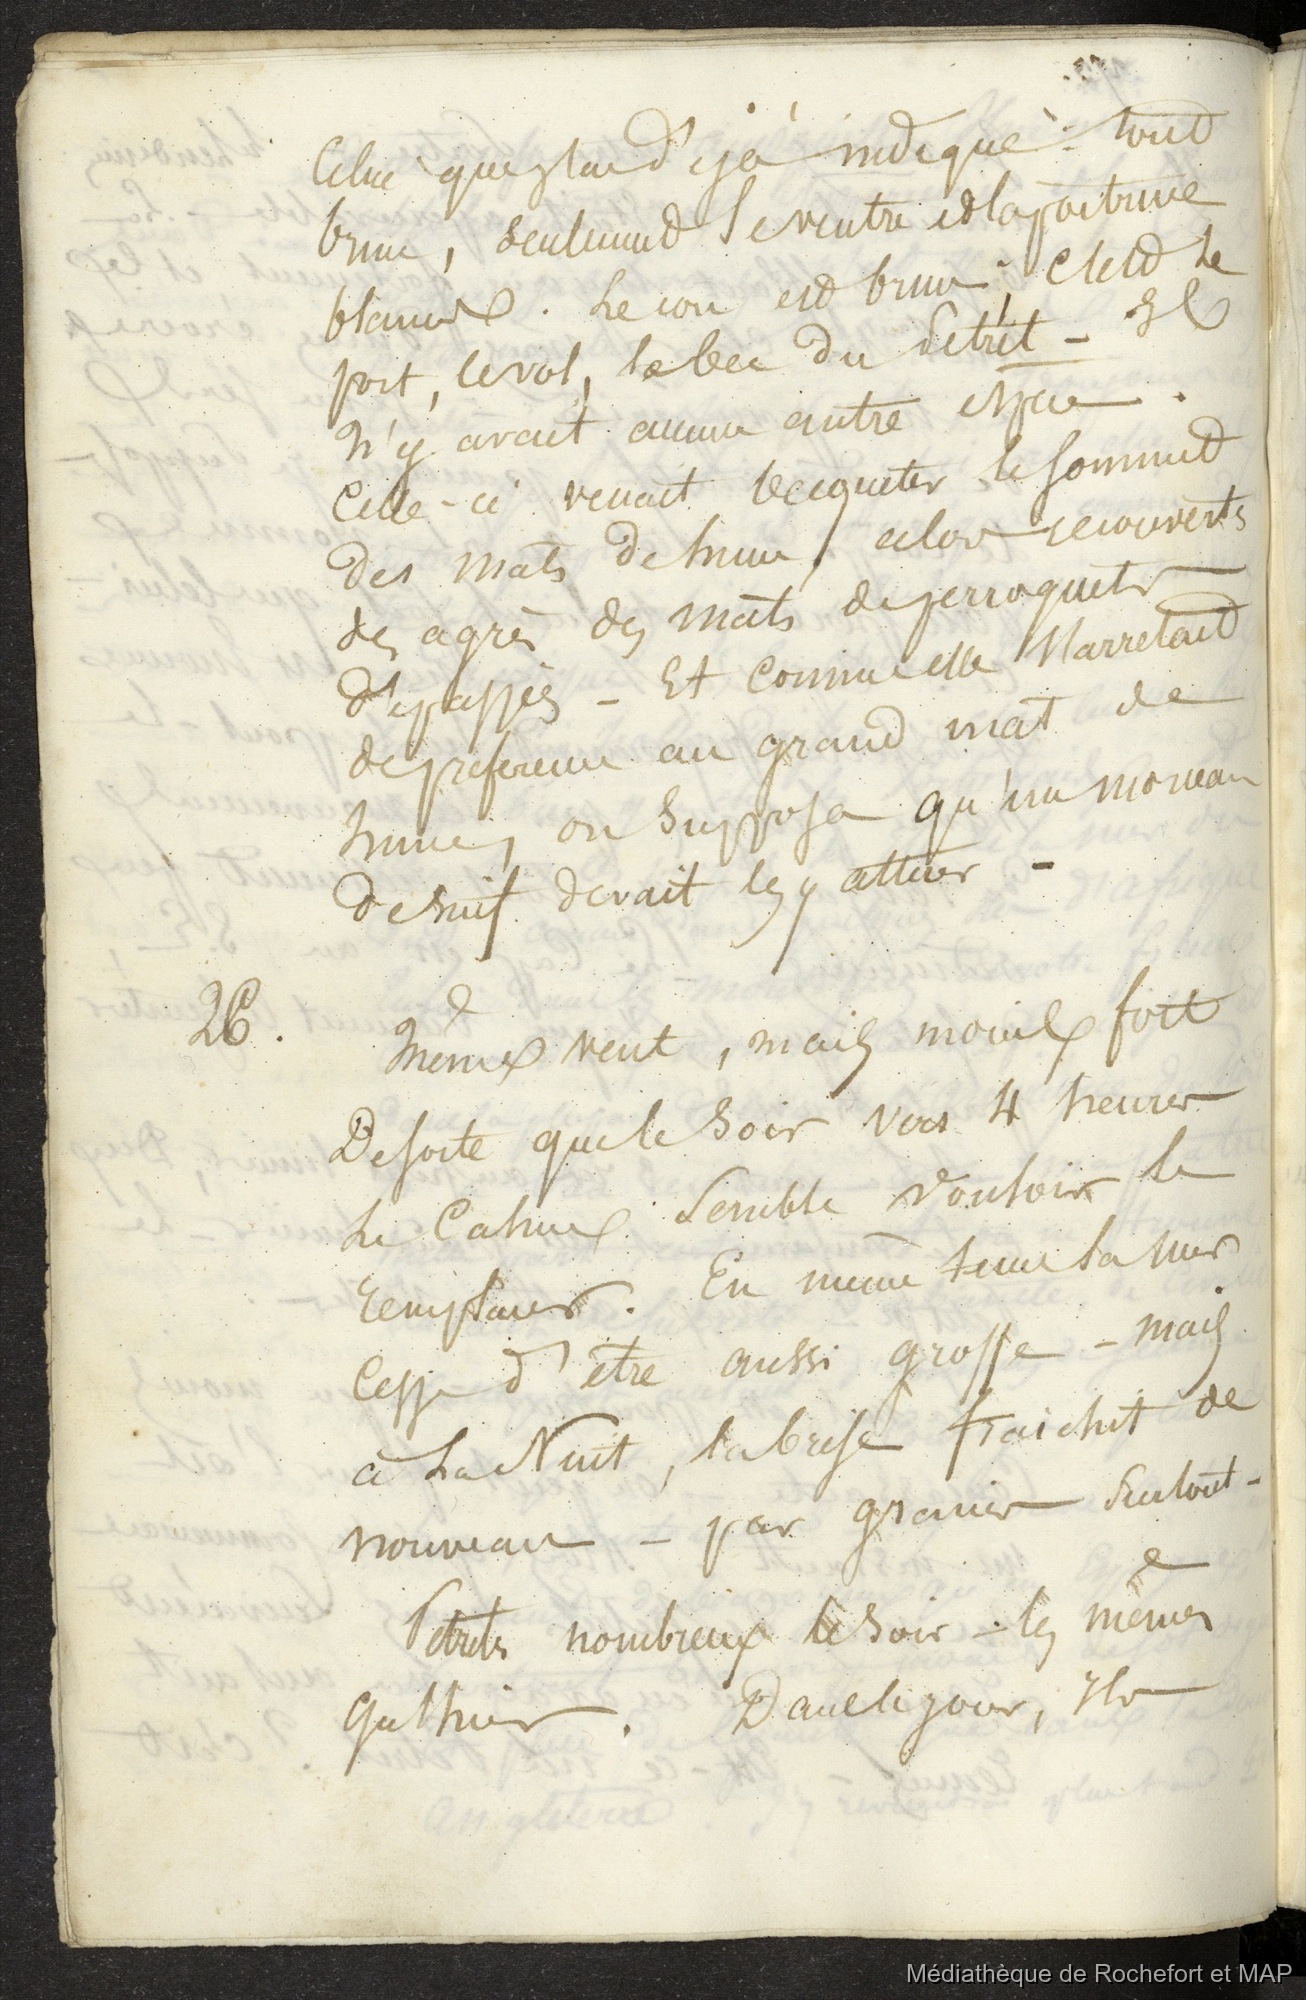 Celui que j'ai déjà indiqué : tout
brun, seulement le ventre et la poitrine
blancs. Le cou est brun ; c'est le
port, le vol, le bec du Pétrel - Il
N'y avait aucune autre espèce.
Celle-ci venait becqueter le sommet
des mats de hune, alors recouverts
des agrès des mats de perroquets
dépassés - Et comme elle s'arretait
de préférence au grand mat de
hune, on supposa qu'un morceau
de suif devait les y attirer -
26. Même vent, mais moins fort
De sorte que le soir vers 4 heures
Le Calme semble vouloir le
remplacer. En même tems la mer
Cesse d'être aussi grosse - mais
à La Nuit, la brise fraichit de
nouveau - par grains surtout -
Pétrels nombreux le soir - les mêmes
qu'hier. Dans le jour, Ils
Médiathèque de Rochefort et MAP